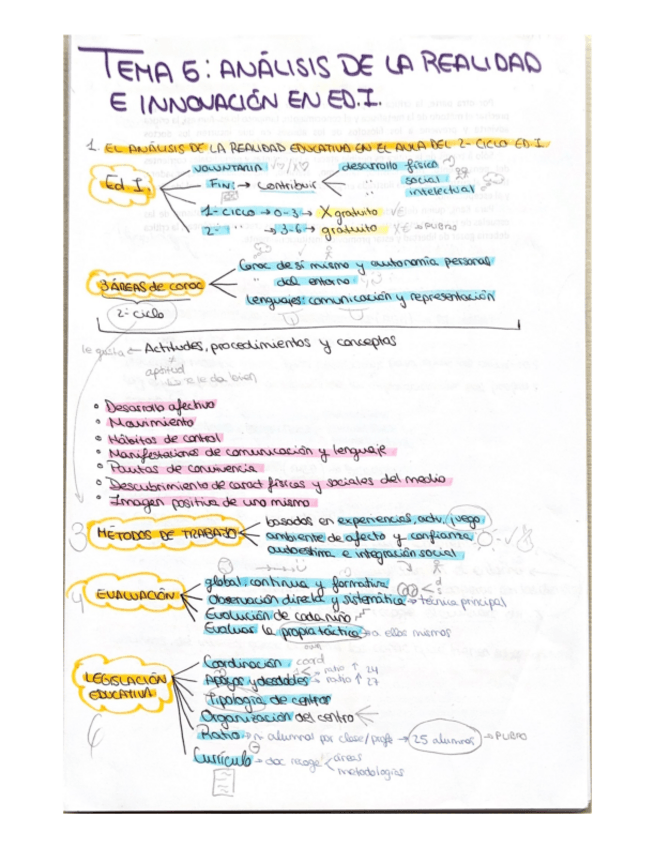 TEMA 6: ANÁLISIS DE LA REALIDAD
E INNOVACIÓN EN ED.I.
1. EL ANÁLISIS DE LA REALIDAD EDUCATIVA EN EL AULA DEL 2º CICLO ED I.
Ed. I.
voluntaria
Fin: → contribuir
desarrollo físico
" social
" intelectual
1º ciclo → 0-3 → X gratuito
2º " → 3-6 → gratuito → PUBAO
3 ÁREAS de conoc
2º ciclo
Conoc de sí mismo y autonomía personal
" del entorno
Lenguajes: comunicación y representación
le gusta ← Actitudes, procedimientos y conceptos
≠
aptitud
se le da bien
• Desarrollo afectivo
• Movimiento
• Hábitos de control
• Manifestaciones de comunicación y lenguaje
• Pautas de convivencia
• Descubrimiento de caract físicas y sociales del medio
• Imagen positiva de uno mismo
3 MÉTODOS DE TRABAJO
basados en experiencias, activ, juego
ambiente de afecto y confianza
autoestima e integración social
4 EVALUACIÓN
global, continua y formativa
Observación directa y sistemática → técnica principal
Evolución de cada niño
Evaluar la propia táctica → a ellos mismos
LEGISLACIÓN
EDUCATIVA
Coordinación coord
Apoyos y desdobles ratio ↑ 24
ratio ↑ 27
Tipología de centros
Organización del centro
Ratio → nº alumnos por clase/profe → 25 alumnos → PUBAO
Currículo → doc recoge
áreas
metodologías